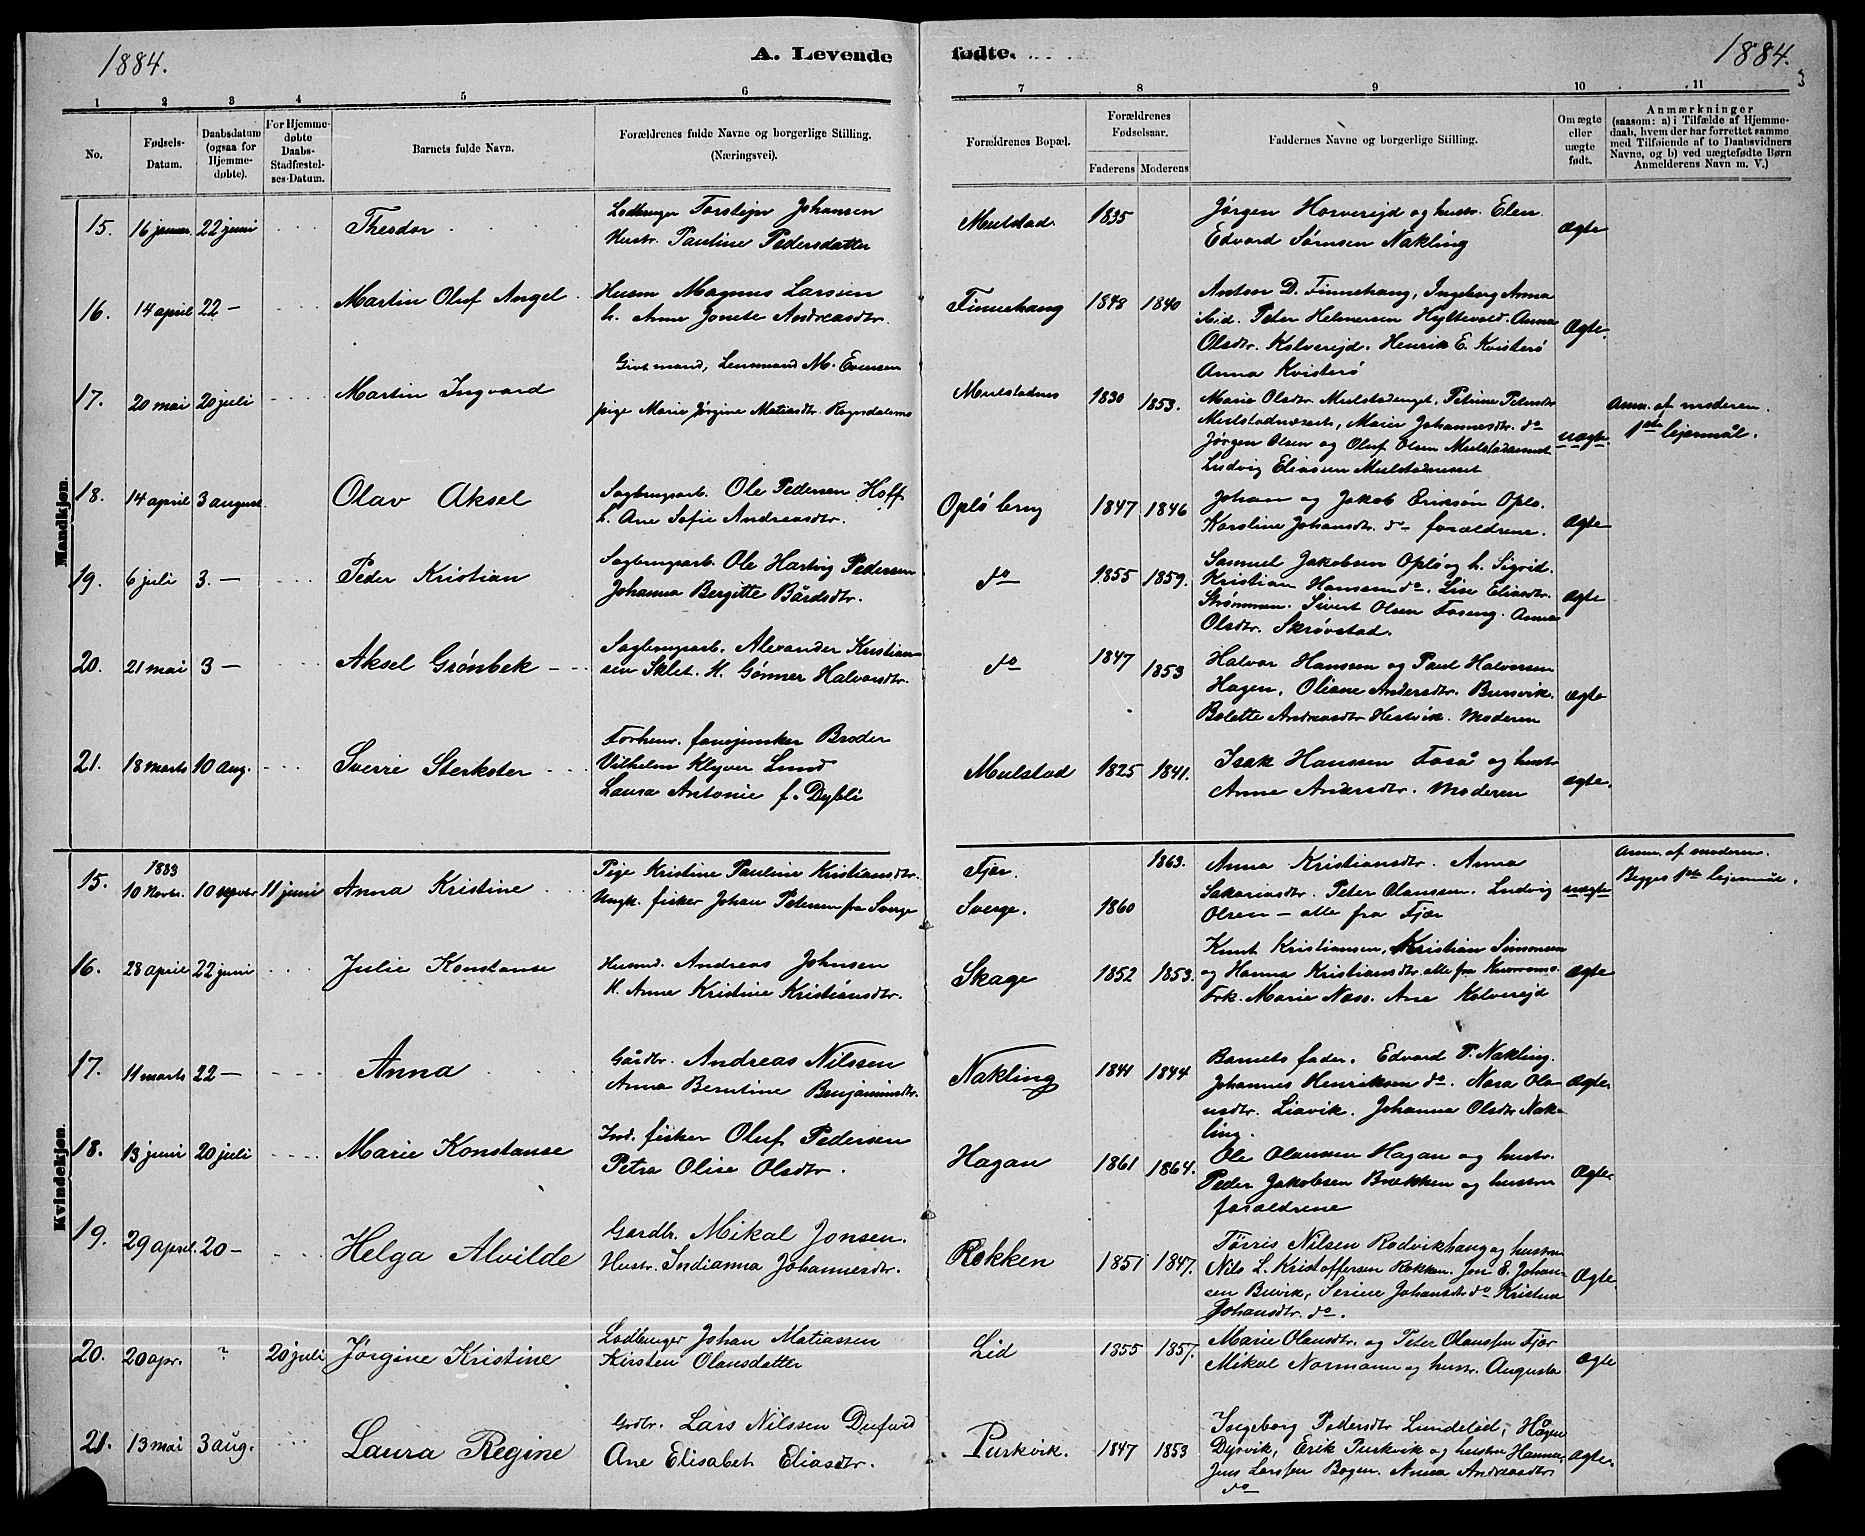 1884.
A. Levende
fødte.
1884.
3
1 2 3 4 5 6 7 8 9 10 11
No.
Fødsels-Datum.
Daabsdatum (ogsaa for Hjemmedøbte).
For Hjemmedøbte Daabs-Stadfæstelses-Datum.
Barnets fulde Navn.
Forældrenes fulde Navne og borgerlige Stilling. (Næringsvei).
Forældrenes Bopæl.
Forældrenes Fødselsaar.
Faderens Moderens
Faddernes Navne og borgerlige Stilling.
Om ægte eller uægte født.
Anmærkninger
(saasom: a) i Tilfælde af Hjemmedaab, hvem der har forrettet samme med Tilføiende af to Daabsvidners Navne, og b) ved uægtefødte Børn Anmelderens Navn m. V.)
Mandkjøn.
15. 16 januar 22 juni Theodor
Torsteijn Johansen
Hustr. Pauline Pedersdatter
Mulstad 1835
Jørgen Horverejd og hustr. Elen.
Edvard Sørnsen Nakling
Ægte
16. 14 april 22 — Martin Oluf Angel
Husm Magnus Larssen
h. Anne Jonete Andreasdtr.
Finnehaug 1848 1840
Antson D. Finnehaug, Ingeborg Anna
ibid. Peter Helmersen Hyltevold. Anna
Olsdtr. Kolverejd. Henrik E. Kvisterø
Anna Kvisterø
Ægte.
17. 20 mai 20 juli Martin Ingvard
Givt mand, Lensmand M. Evensen
pige Marie Jørgine Matiasdtr.
Mulstadnes 1830 1853.
Marie Olsdtr. Petrine Petersdtr
Marie Johannesdtr. do
Jørgen Olsen og Oluf Olsen
Ludvig Eliassen
uægte
Anm. af moderen.
1ste lejermål.
18. 14 april 3 august Olav Aksel
Sagbrugarb. Ole Pedersen Hoff
h. Ane Sofie Andreasdtr.
Opløbrug 1847 1846
Johan og Jakob Eriksøn Oplø.
Karoline Johansdtr. do forældrene.
Ægte
19. 6 juli 3. — Peder Kristian
Sagbrugarb. Ole Hartvig Pedersen
Johanna Bergitte Bårdsdtr.
do 1855 1859.
Samuel Jakobsen Oplø og h. Sigrid.
Kristian Hanssen do. Lise Eliasdtr.
Strømmen. Sivert Olsen Foseng. Anna
Olsdtr. Skrøvstad.
Ægte
20. 21 mai 3 — Aksel Grønbek
Sagbrugarb. Alexander Kristian-
sen Sklet. H. Gønner Halvorsdtr.
do 1847 1853
Halvor Hanssen og Paul Halvorsen
Hagen. Oliane Andersdtr. Buvik.
Bolette Andreasdtr Hestvik. Moderen
ægte
21. 18 marts 10 aug. Sverre Sterkoter
Forhenv. fanejunker Broder
Vilhelm Klyver Lund
Laura Antonie f. Dybli
Mulstad 1825 1841.
Isak Hanssen Foså og hustr
Anne Andersdtr. Moderen
ægte.
Kvindekjøn.
15. 1883 10 Novbr. 10 Novbr 11 juni Anna Kristine
Pige Kristine Pauline Kristiansdtr.
Ungk. fisker Johan Petersen fra Sverge
Fjær 1863.
Sverge. 1860
Anna Kristiansdtr. Anna
Sakariasdtr. Peter Olanssen. Ludvig
Olsen — alle fra Fjær
uægte
Anm. af moderen.
Begges 1ste lejermål.
16. 28 april 22 juni Julie Konstanse
Husmd. Andreas Johnsen
H. Anne Kristine Kristiansdtr.
Skage 1852 1853.
Knut Kristiansen, Kristian Simonsen
og Hanna Kristiansdtr. alle fra
Frk. Marie Næss. Ane Kolverejd
Ægte
17. 11 marts 22 — Anna
Gårdbr. Andreas Nilssen
Anna Berntine Benjaminsdtr.
Nakling 1841 1844
Barnets fader. Edvard P. Nakling.
Johannes Henriksen do. Nora Ola-
nsdtr. Liavik. Johanna Olsdtr Nak-
ling.
Ægte
18. 13 juni 20 juli Marie Konstanse
Ind. fisker Oluf Pedersen
Petra Olise Olsdtr.
Hagan 1861 1864.
Ole Olaussen Hagan og hustr.
Peder Jakobsen Brækken og hustru
forældrene
Ægte
19. 29 april. 20 — Helga Alvilde
Gardbr. Mikal Jonsen.
Hustr. Indianna Johannesdtr.
Rokken 1851 1847.
Tørris Nilsen Rødvikhaug og hustru
Nils L. Kristoffersen Rokken. Jon E. Johan-
sen Buvik, Serine Johansdtr do Kristine
Johansdtr. do.
Ægte.
20. 20 apr. ? 20 juli Jørgine Kristine
Johan Matiassen
Kirsten Olausdatter
Lid 1855 1857.
Marie Olausdtr. og Peter Olaussen Fjær
Mikal Normann og hustr. Augusta
Ægte
21. 13 mai 3 aug. Laura Regine
Grdbr. Lars Nilssen
Ane Elisabet Eliasdtr.
Purkvik. 1847 1853
Ingeborg Pedersdtr Lundelød, Hågen
Dypvik, Erik Purkvik og hustru Hanna,
Jens Larssen Bogen. Anna Andreasdtr
do
Ægte.